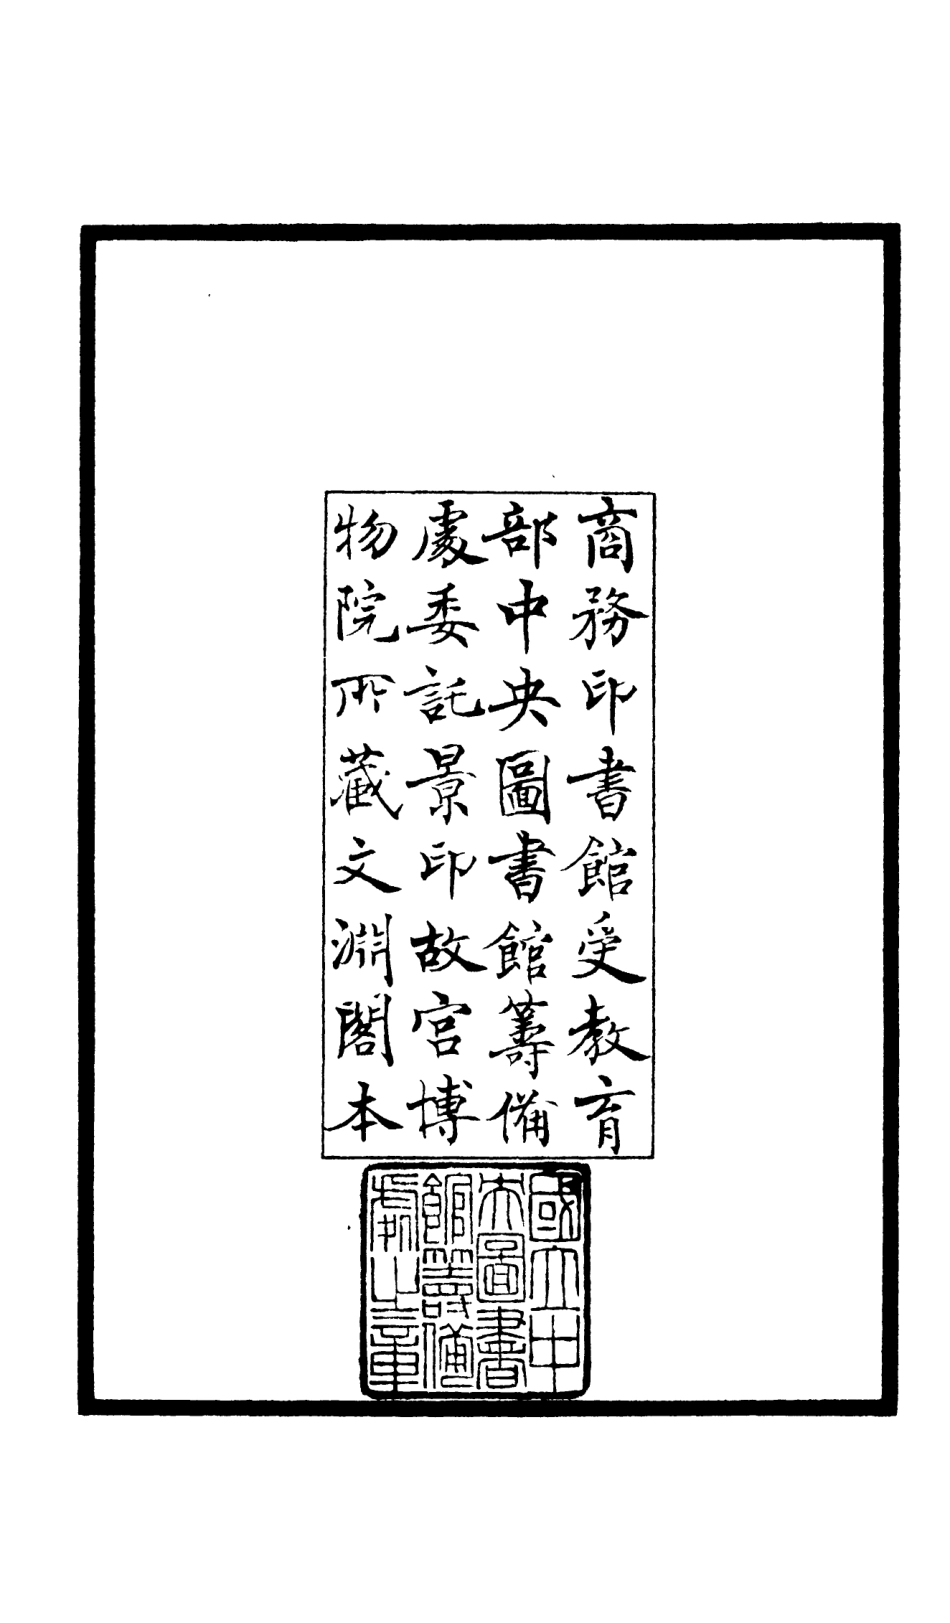 商務印書館受教育
部中央圖書館籌備
處委託景印故宫博
物院所藏文淵閣本
國立中
央圖書
館籌備
處之章